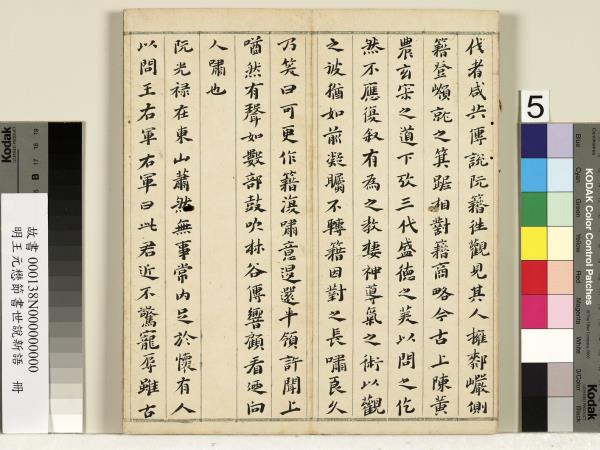 伐者咸共傳說阮籍往觀見其人擁膝巖側
籍登嶺就之箕踞相對籍商略今古上陳黃
農玄寂之道下攷三代盛德之美以問之仡
然不應復敘有為之教棲神導氣之術以觀
之彼猶如前凝矚不轉籍因對之長嘯良久
乃笑曰可更作籍復嘯意盡還半嶺許聞上
㗜然有聲如數部鼓吹林谷傳響顧看迺向
人嘯也
阮光祿在東山蕭然無事常內足於懷有人
以問王右軍右軍曰此君近不驚寵辱雖古
故書 000138N000000000
明王元懋節書世說新語 冊
5
Kodak
KODAK Color Control Patches
Blue
Cyan
Green
Yellow
Red
Magenta
White
3/Color
Black
Kodak
B